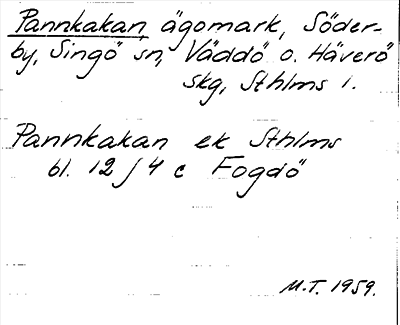 Pannkakan, ägomark, Söder-
by, Singö sn, Väddö o. Häverö
skg, Sthlms l.
Pannkakan ek Sthlms
bl. 12 J 4 c Fogdö
M.T. 1959.